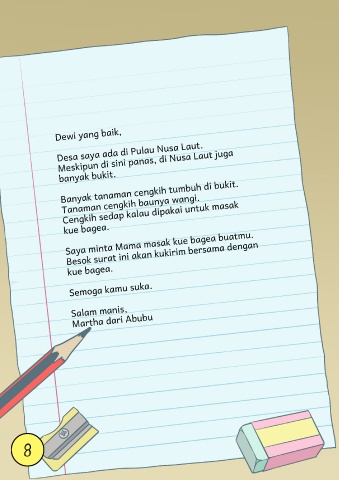 Dewi yang baik,
Desa saya ada di Pulau Nusa Laut.
Meskipun di sini panas, di Nusa Laut juga
banyak bukit.
Banyak tanaman cengkih tumbuh di bukit.
Tanaman cengkih baunya wangi.
Cengkih sedap kalau dipakai untuk masak
kue bagea.
Saya minta Mama masak kue bagea buatmu.
Besok surat ini akan kukirim bersama dengan
kue bagea.
Semoga kamu suka.
Salam manis,
Martha dari Abubu
8